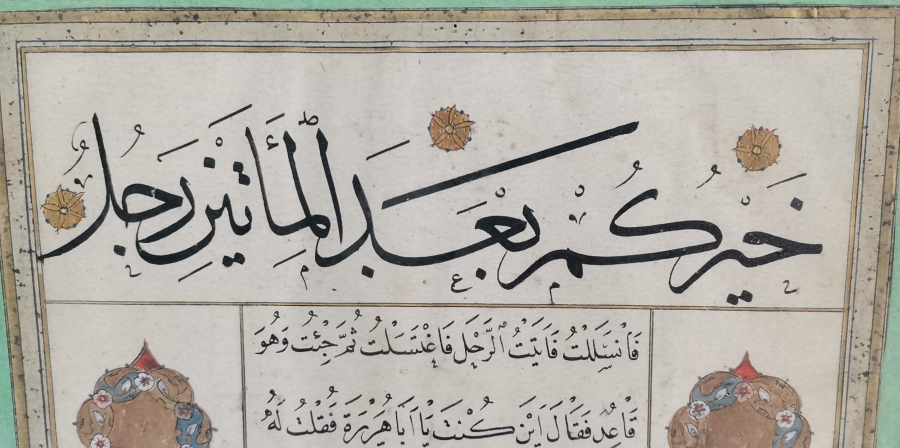 خَيْرُكُمْ بَعْدَ الْمَأَتَيْنِ رَجُلٌ
فَانْسَلَلْتُ فَاَتَيْتُ الرَّحْلَ فَاغْتَسَلْتُ ثُمَّ جِئْتُ وَهُوَ
قَاعِدٌ فَقَالَ اَيْنَ كُنْتَ يَا اَبَا هُرَيْرَةَ فَقُلْتُ لَهُ